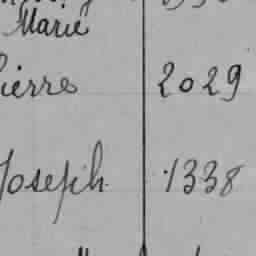 Marie
Pierre 2029
Joseph 1338